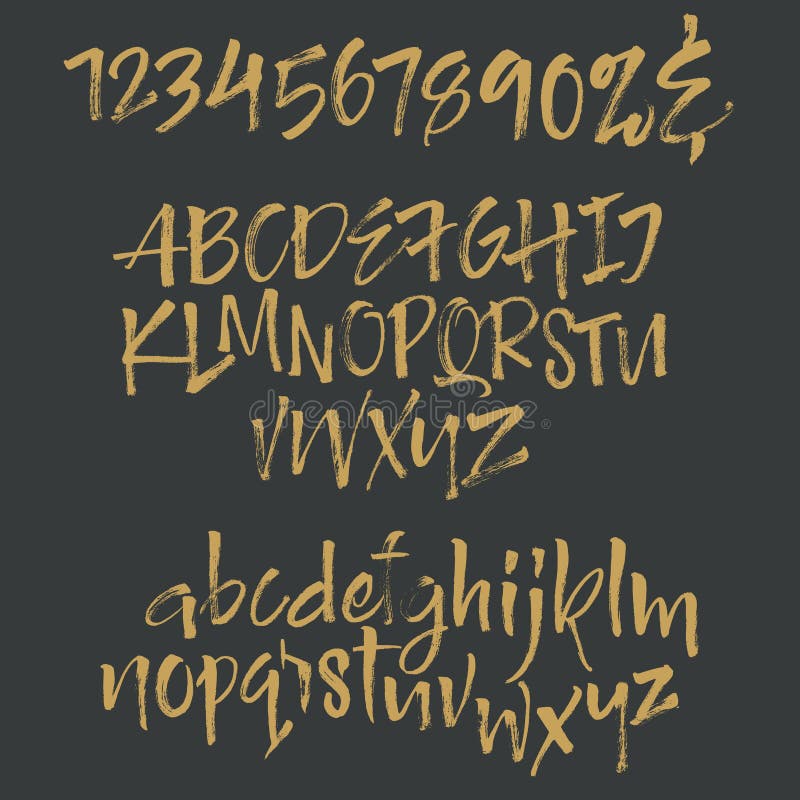 1234567890%&
ABCDEFGHIJ
KLMNOPQRSTU
VWXYZ
dreamstime
abcdefghijklm
nopqrstuvwxyz